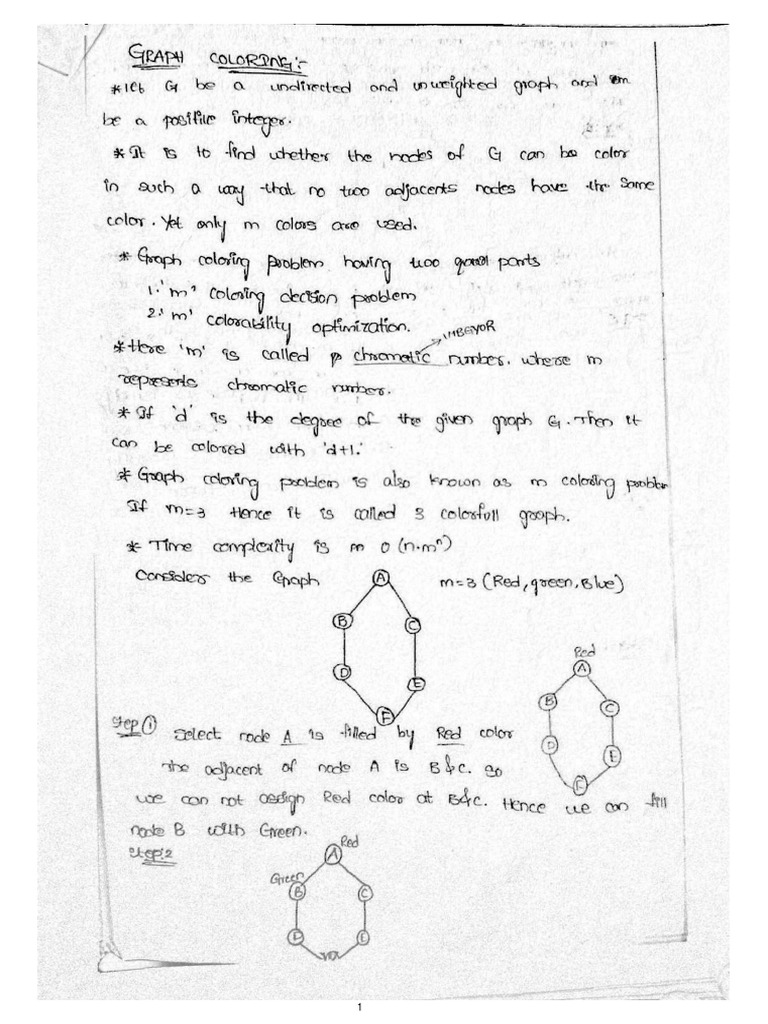 GRAPH COLORING:-
*let G be a undirected and unweighted graph and m
be a positive integer.
*It is to find whether the nodes of G can be color
in such a way that no two adjacents nodes have the same
color. Yet only m colors are used.
* Graph coloring problem having two parts
1. 'm' coloring decision problem
2. 'm' colorability optimization.
*Here 'm' is called chromatic number. where m
represents chromatic number.
* If 'd' is the degree of the given graph G. Then it
can be colored with 'd+1.'
* Graph coloring problem is also known as m coloring problem
If m=3 Hence it is called 3 colorfull graph.
* Time complexity is m O(n.mⁿ)
Consider the Graph m=3 (Red, green, Blue)
A
B C
D E
F
Red
A
B C
D E
F
Step ① Select node A is filled by Red color
The adjacent of node A is B&C. so
we can not assign Red color at B&C. Hence we can fill
node B with Green.
Step:2
Red
A
Green
B C
E
1